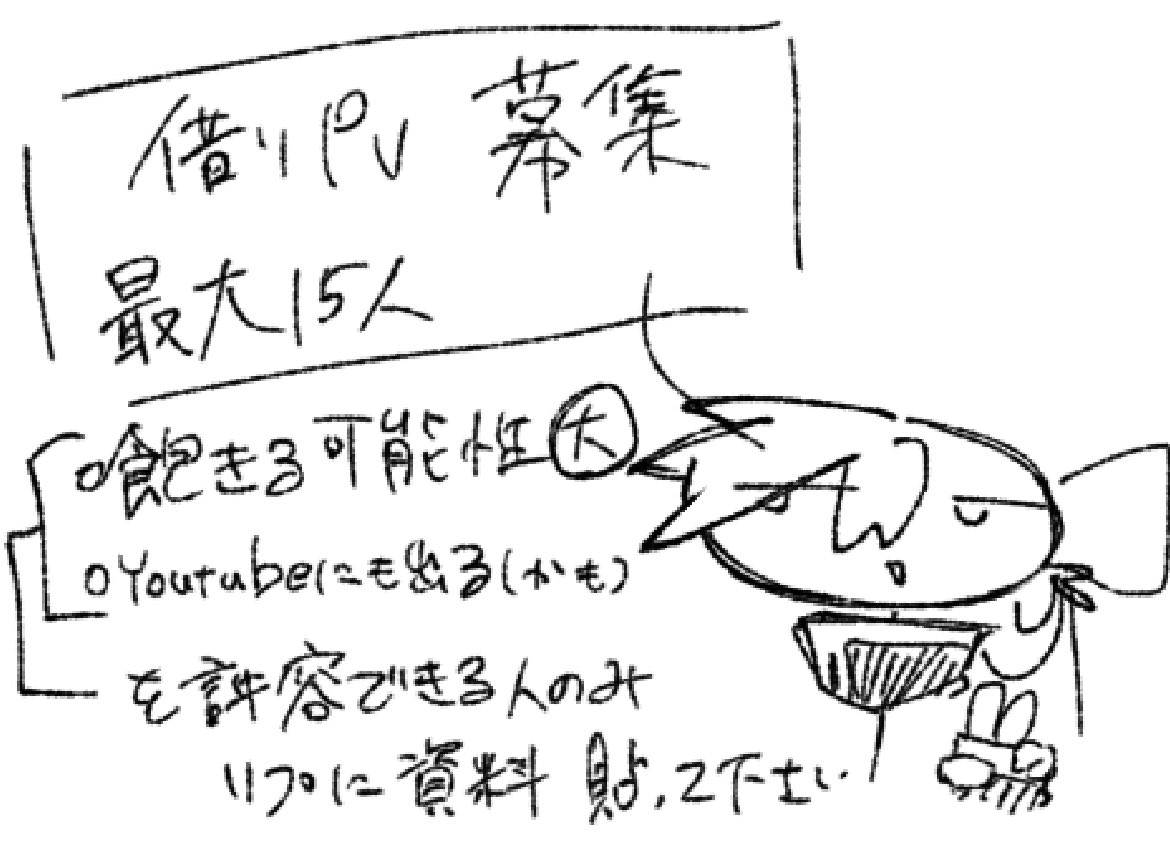 借りPV 募集
最大15人
○飽きる可能性大
○Youtubeにも出る(かも)
を許容できる人のみ
リプに資料 貼って下さい